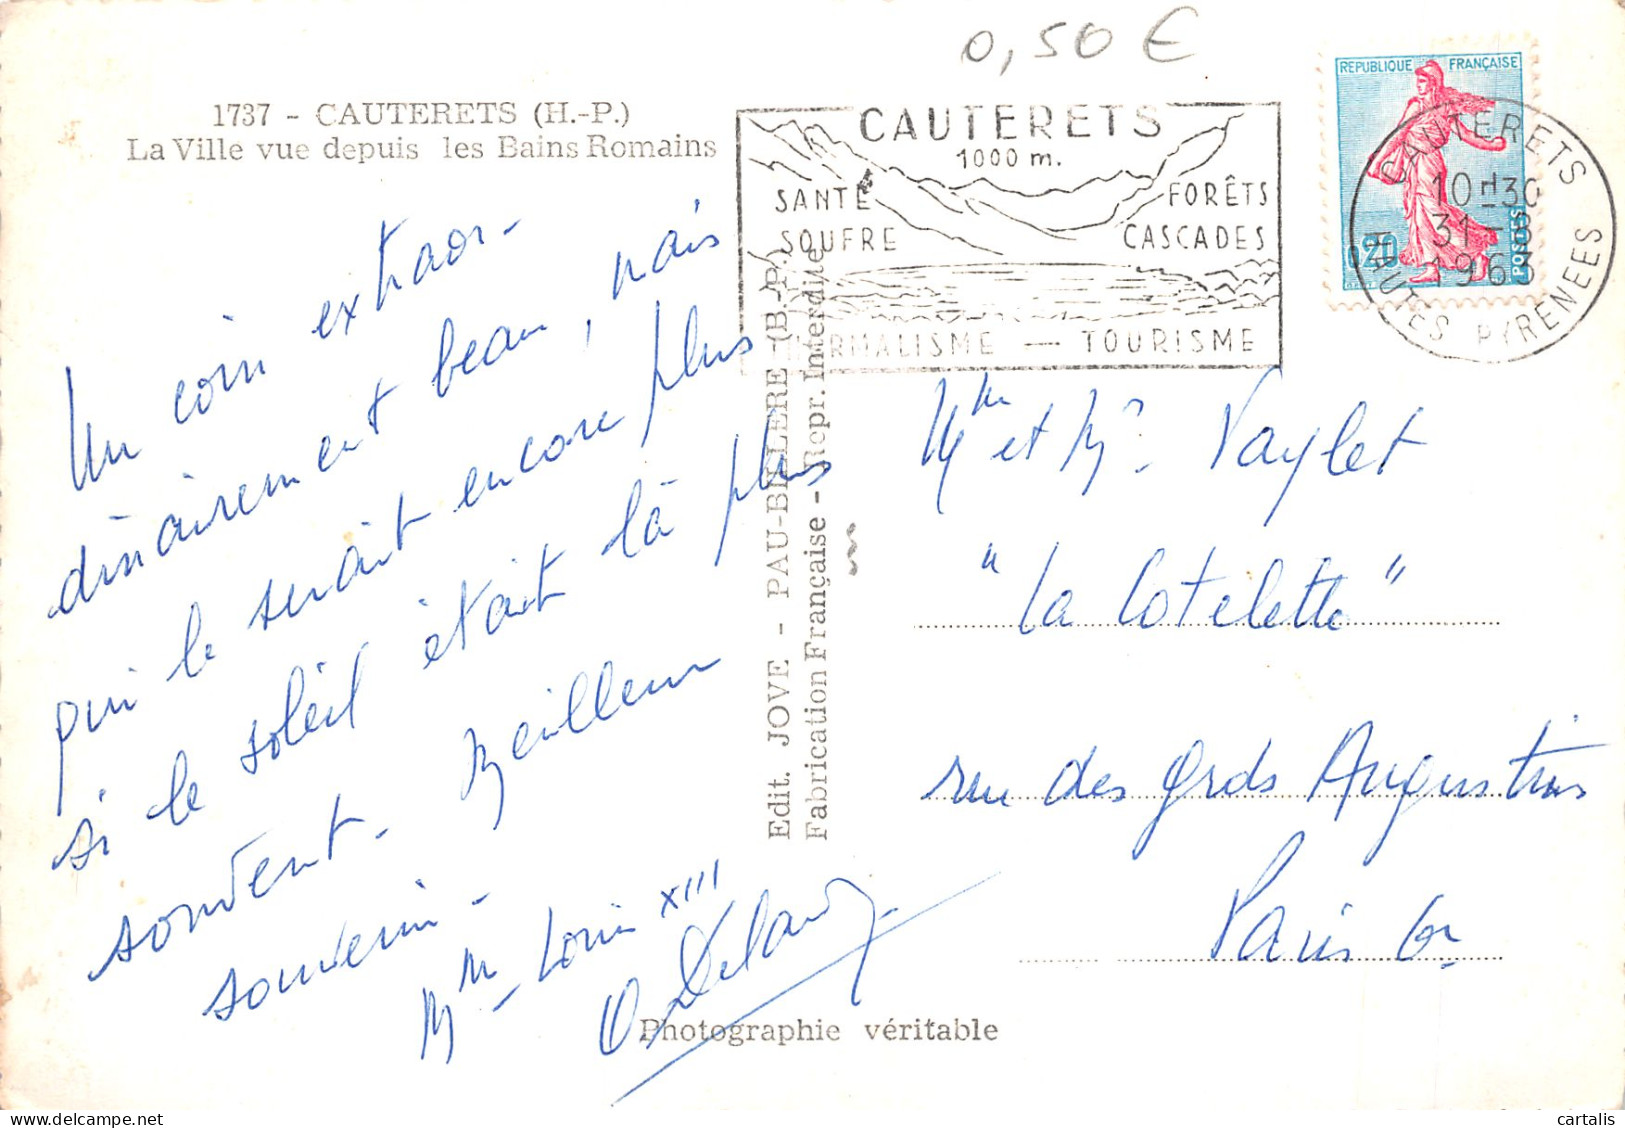 0,50 €
1737 - CAUTERETS (H.-P.)
La Ville vue depuis les Bains Romains
CAUTERETS
1000 m.
SANTÉ
SOUFRE
FORÊTS
CASCADES
THERMALISME — TOURISME
REPUBLIQUE FRANÇAISE
0,20
POSTES
CAUTERETS
10H30
31-8
1963
HAUTES PYRENEES
Un coin extraor-
dinairement beau, mais
qui le serait encore plus
si le soleil était là plus
souvent. Meilleur
souvenir.
Mme Louis XIII
Edit. JOVE - PAU-BILLERE (B.-P.)
Fabrication Française - Repr. Interdite
Mme et Mr Vaylet
"La Cotelette"
rue des Grds Augustins
Paris 6e
Photographie véritable
cartalis